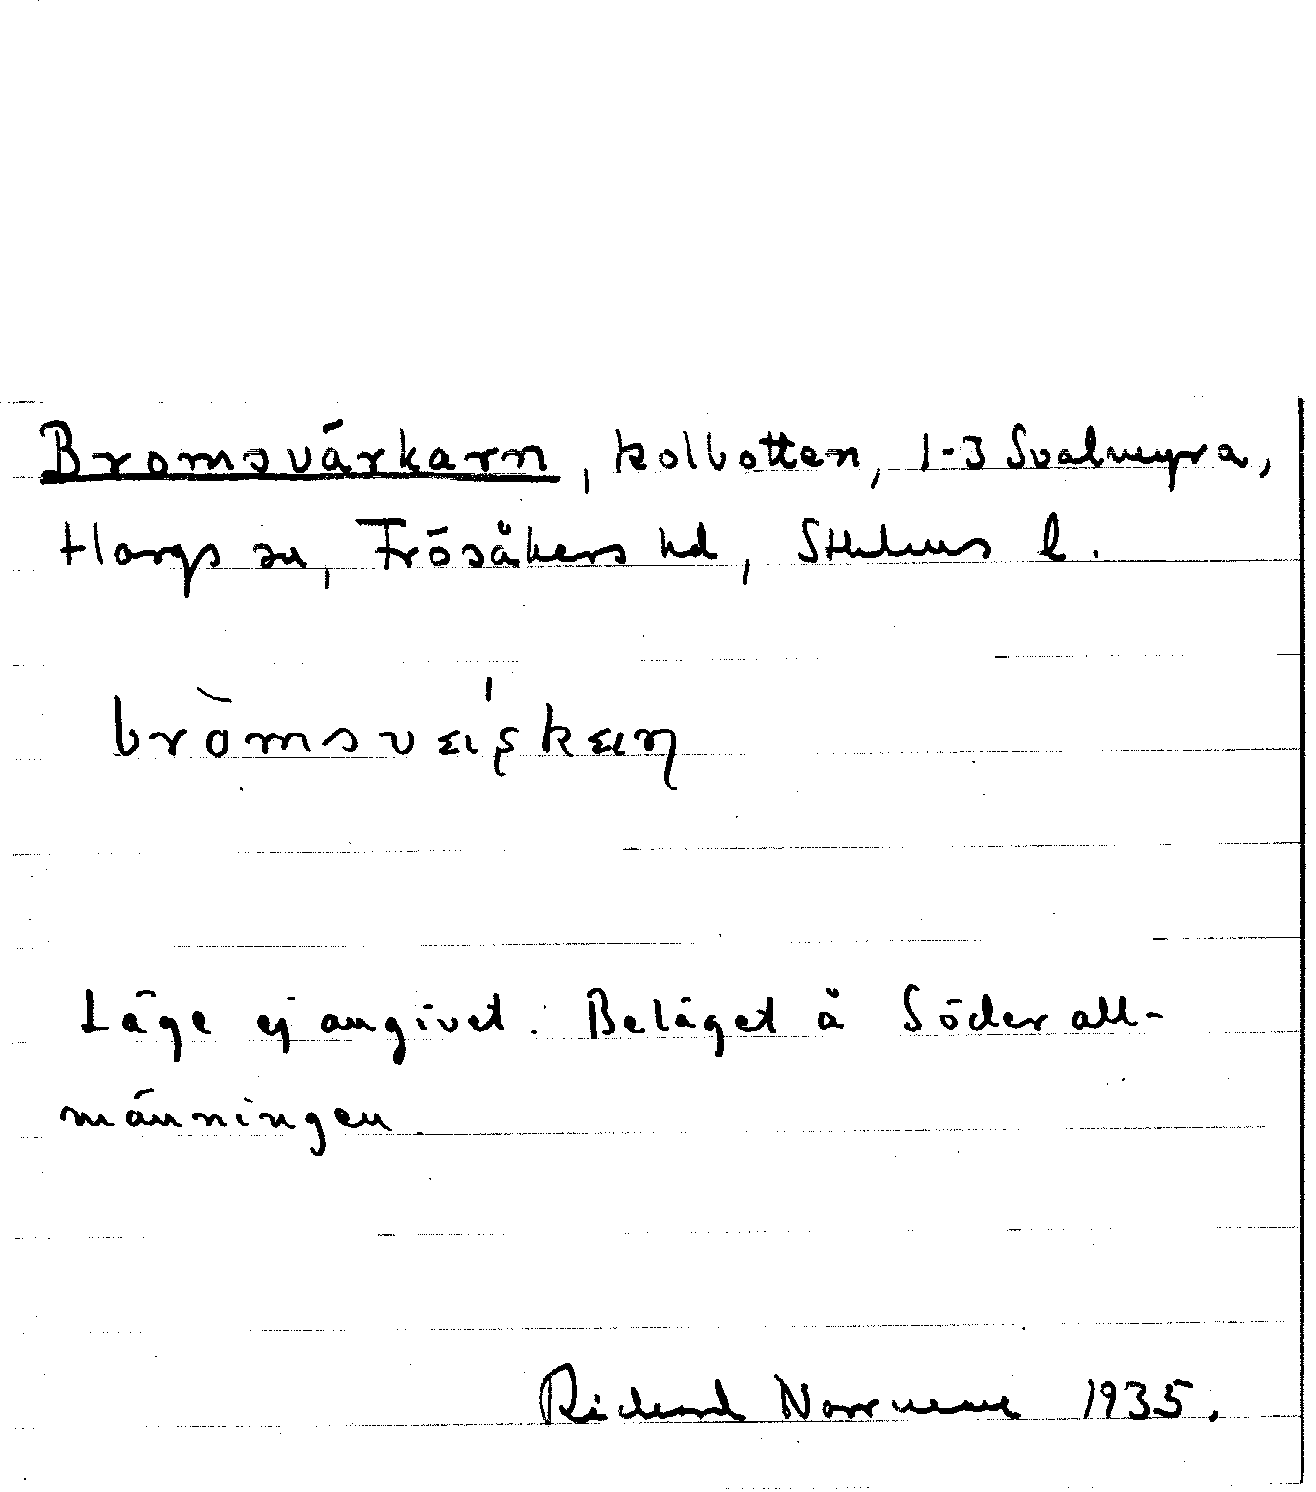 Bromsvärkarn, kolbotten, 1-3 Svalmyra,
Hargs sn, Frösåkers hd, Sthlms l.
Läge ej angivet. Beläget å Söder all-
männingen
Richard Norrmene 1935.